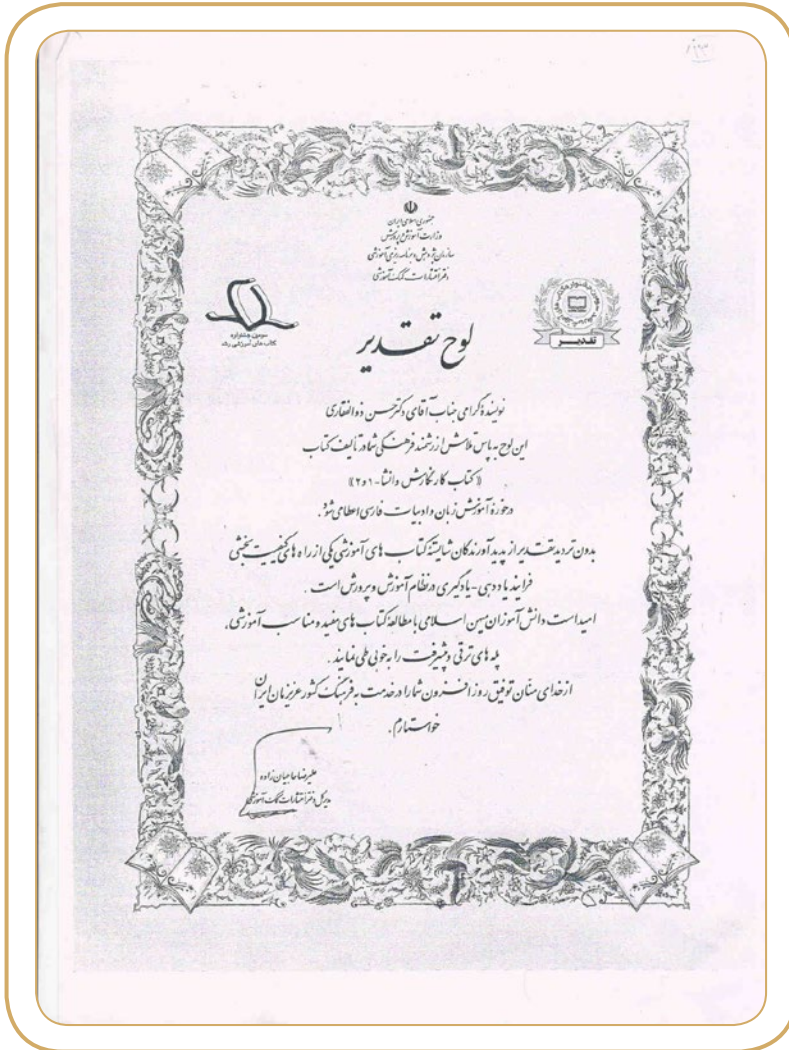 جمهوری اسلامی ایران
وزارت آموزش و پرورش
سازمان پژوهش و برنامه ریزی آموزشی
دفتر انتشارات کمک آموزشی
سومین جشنواره
کتاب های آموزشی رشد
تقدیر
لوح تقدیر
نویسنده گرامی جناب آقای دکتر حسن ذوالفقاری
این لوح به پاس تلاش ارزشمند فرهنگی شما در تألیف کتاب
«کتاب کار نگارش و انشا - ۱ و ۲»
در حوزه آموزش زبان و ادبیات فارسی اعطا می شود.
بدون تردید تقدیر از پدید آورندگان شایسته کتاب های آموزشی یکی از راه های کیفیت بخشی
فرایند یاددهی - یادگیری در نظام آموزش و پرورش است.
امید است دانش آموزان میهن اسلامی با مطالعه کتاب های مفید و مناسب آموزشی،
پله های ترقی و پیشرفت را به خوبی طی نمایند.
از خدای منان توفیق روز افزون شما را در خدمت به فرهنگ کشور عزیزمان ایران
خواستارم.
علیرضا حاجیان زاده
مدیر کل دفتر انتشارات کمک آموزشی